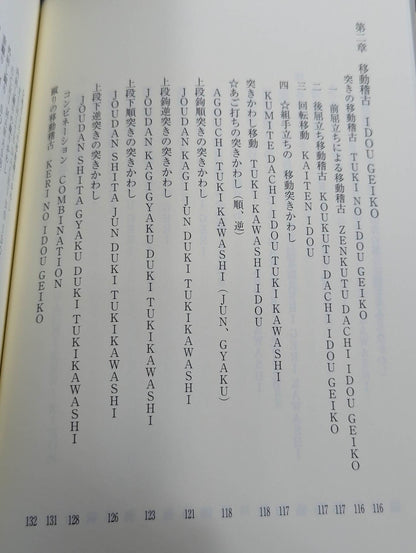 第二章 移動稽古 IDOU GEIKO
突きの移動稽古 TUKI NO IDOU GEIKO 116
一 前屈立ちによる移動稽古 ZENKUTU DACHI IDOU GEIKO 116
二 後屈立ち移動稽古 KOUKUTU DACHI IDOU GEIKO 117
三 回転移動 KAITEN IDOU 117
四 ☆組手立ちの 移動突きかわし
KUMITE DACHI IDOU TUKI KAWASHI 117
突きかわし移動 TUKI KAWASHI IDOU 118
☆あご打ちの突きかわし(順、逆)
AGOUCHI TUKI KAWASHI (JUN、GYAKU) 118
上段鉤順突きの突きかわし
JOUDAN KAGI JUN DUKI TUKIKAWASHI 121
上段鉤逆突きの突きかわし
JOUDAN KAGIGYAKU DUKI TUKIKAWASHI 123
上段下順突きの突きかわし
JOUDAN SHITA JUN DUKI TUKIKAWASHI 126
上段下逆突きの突きかわし
JOUDAN SHITA GYAKU DUKI TUKIKAWASHI 128
コンビネーション COMBINATION 131
蹴りの移動稽古 KERI NO IDOU GEIKO 132